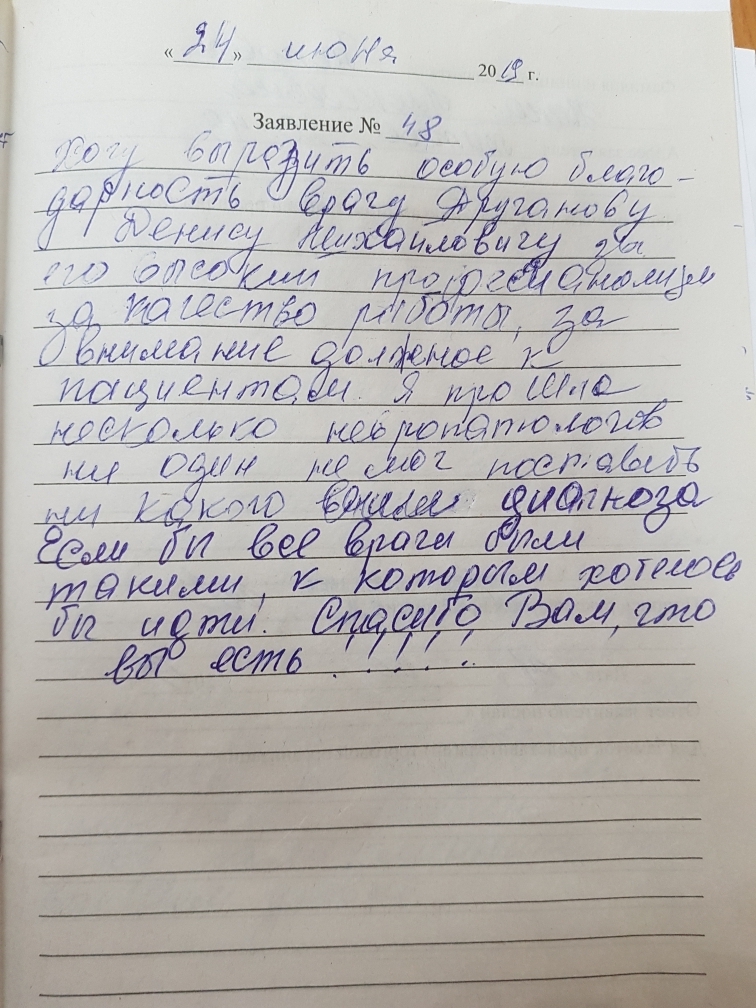 «24» июня 2019 г.
Заявление № 48
Хочу выразить особую благо-
дарность врачу Друганову
Денису Михайловичу за
его высокий професианолизм
за качество работы, за
внимание должное к
пациентам. Я прошла
несколько невропатологов
ни один не мог поставить
ни какого диагноза
Если бы все врачи были
такими, к которым хотелось
бы идти. Спасибо Вам, что
вы есть !!!!!